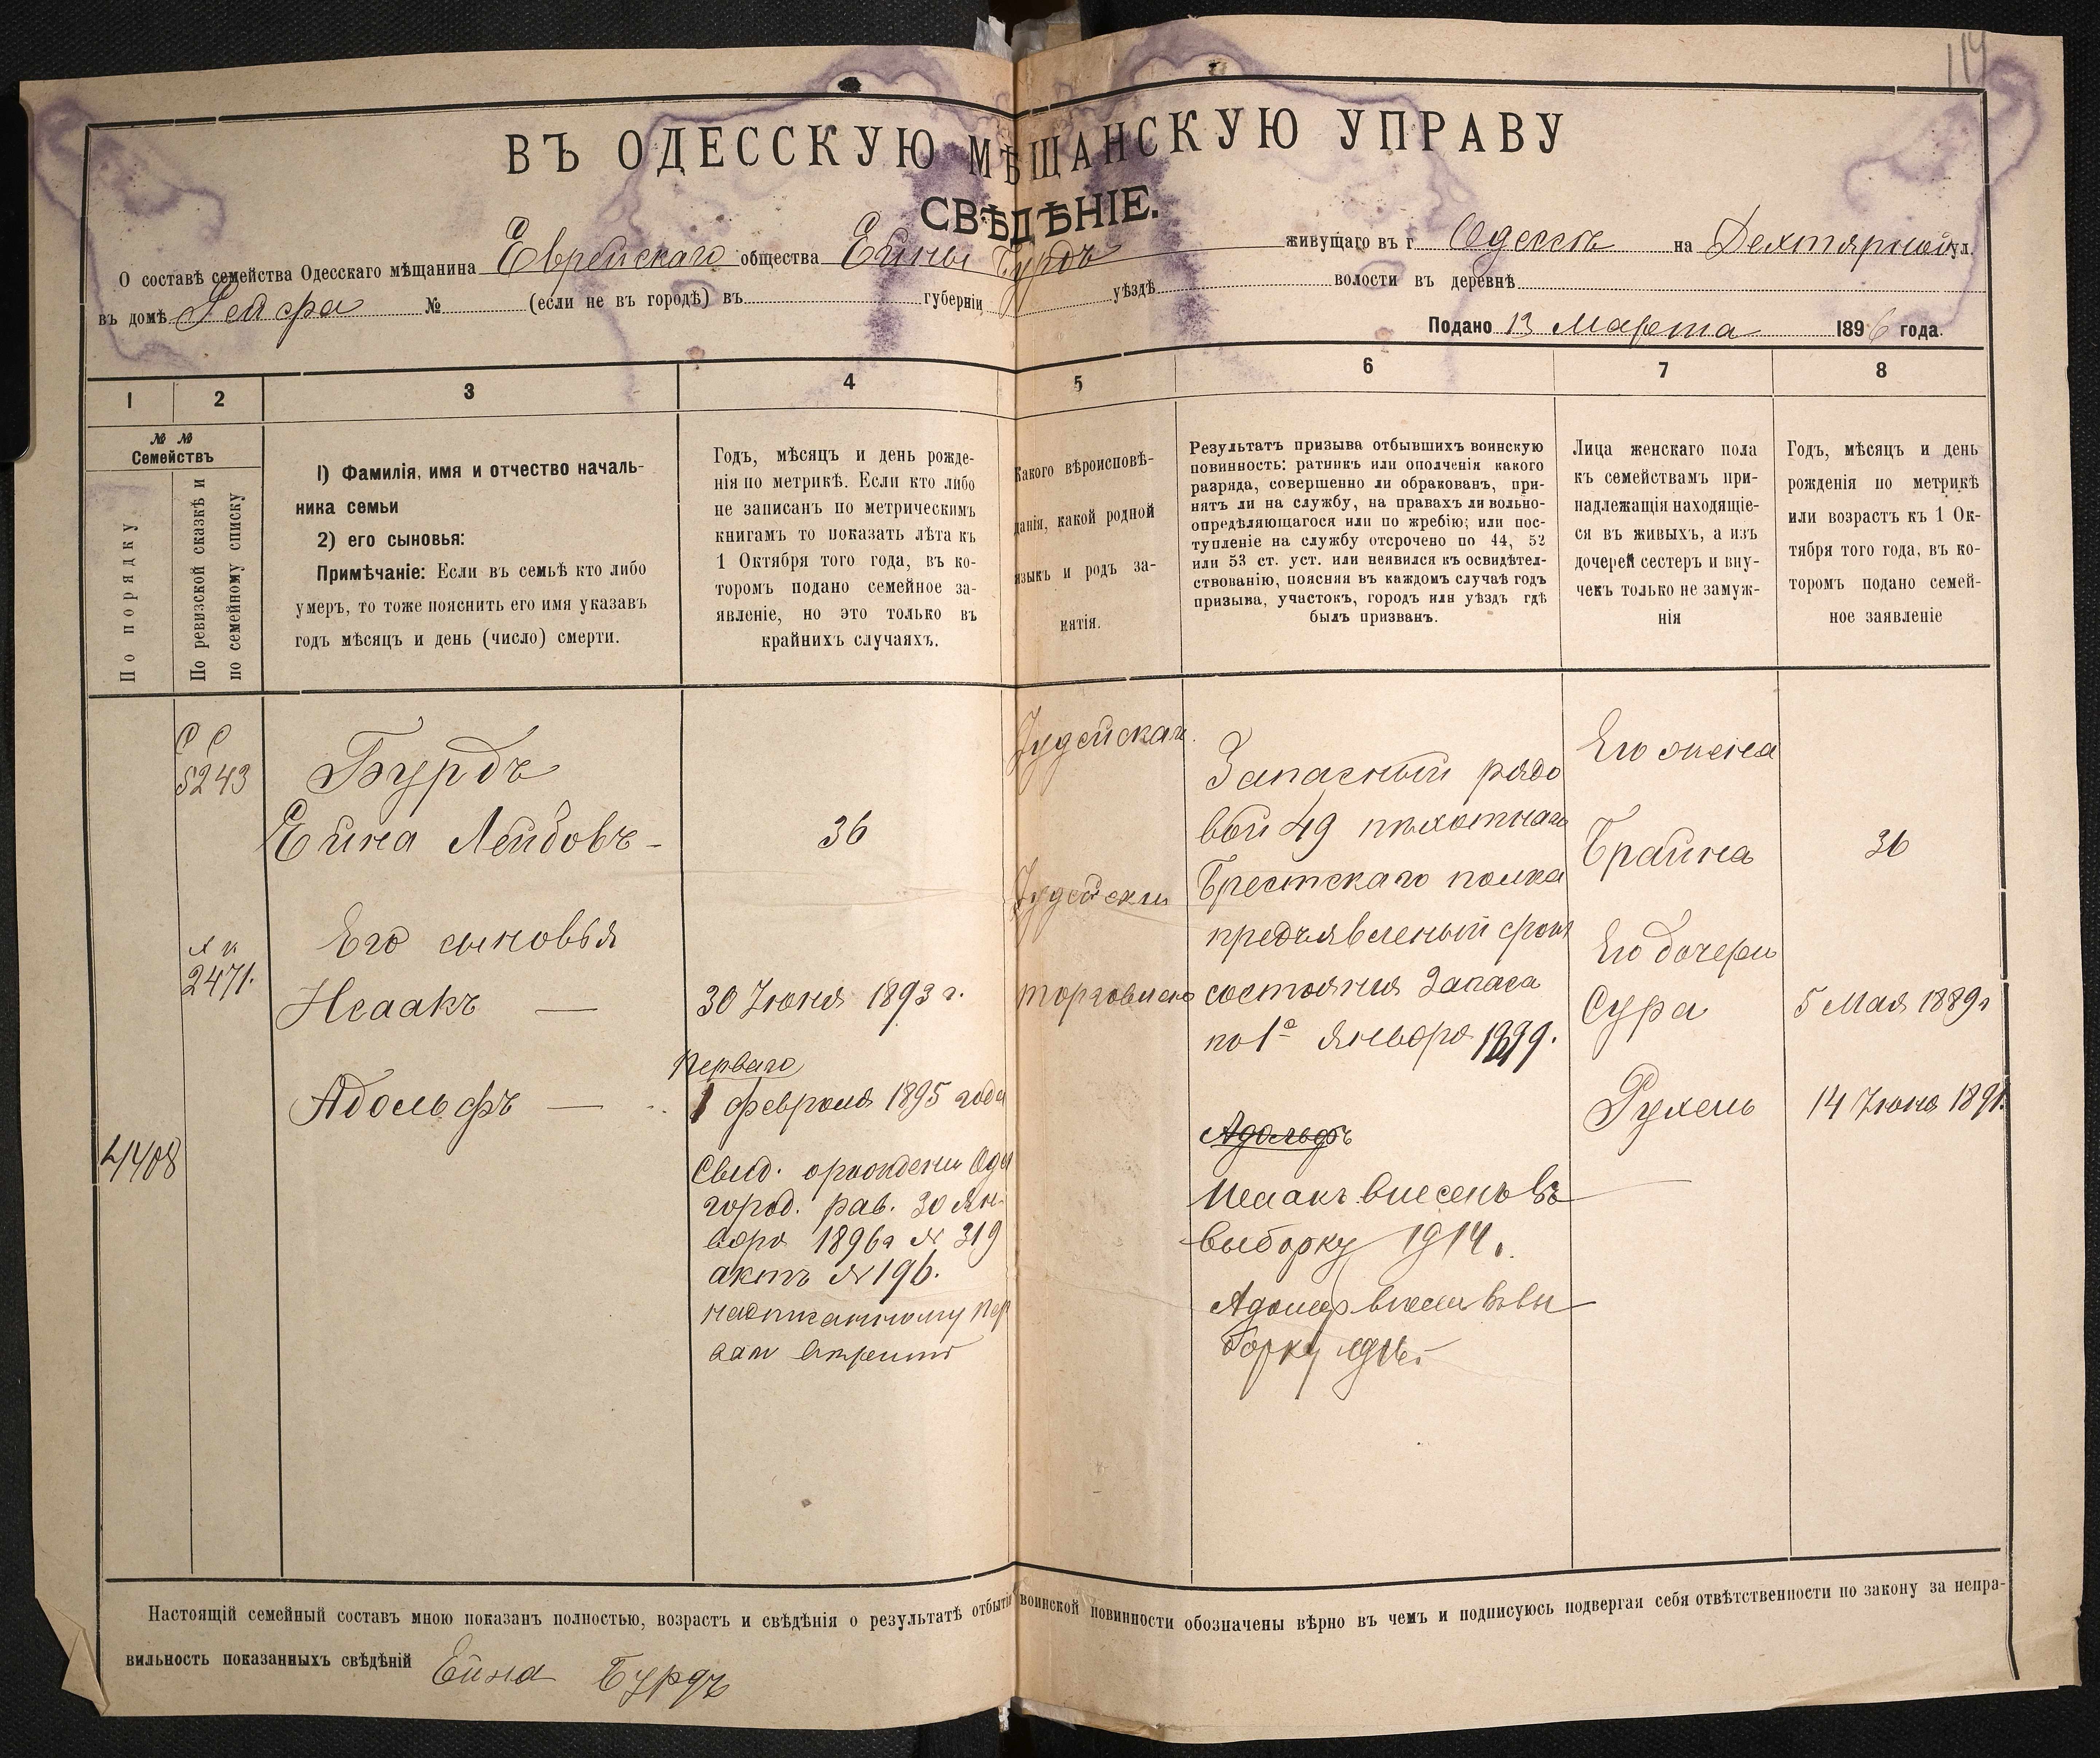 114
ВЪ ОДЕССКУЮ МѢЩАНСКУЮ УПРАВУ
СВѢДѢНІЕ.
О составѣ семейства Одесскаго мѣщанина Еврейскаго общества Ейны Бурдъ живущаго въ г Одессѣ на Дехтярной ул.
въ домѣ № (если не въ городѣ) въ губерніи уѣздѣ волости въ деревнѣ
Подано 13 Марта 1896 года.
1 2 3 4 5 6 7 8
№ №
Семействъ
По порядку
По ревизской сказкѣ и
по семейному списку
1) Фамилія, имя и отчество началь-
ника семьи
2) его сыновья:
Примѣчаніе: Если въ семьѣ кто либо
умеръ, то тоже пояснить его имя указавъ
годъ мѣсяцъ и день (число) смерти.
Годъ, мѣсяцъ и день рожде-
нія по метрикѣ. Если кто либо
не записанъ по метрическимъ
книгамъ то показать лѣта къ
1 Октября того года, въ ко-
торомъ подано семейное за-
явленіе, но это только въ
крайнихъ случаяхъ.
Какого вѣроисповѣ-
данія, какой родной
языкъ и родъ за-
нятія.
Результатъ призыва отбывшихъ воинскую
повинность: ратникъ или ополченія какого
разряда, совершенно ли обракованъ, при-
нятъ ли на службу, на правахъ ли вольно-
опредѣляющагося или по жребію; или пос-
тупленіе на службу отсрочено по 44, 52
или 53 ст. уст. или неявился къ освидѣтел-
ствованію, поясняя въ каждомъ случаѣ годъ
призыва, участокъ, городъ или уѣздъ гдѣ
былъ призванъ.
Лица женскаго пола
къ семействамъ при-
надлежащія находящіе-
ся въ живыхъ, а изъ
дочерей сестеръ и вну-
чекъ только не замуж-
нія
Годъ, мѣсяцъ и день
рожденія по метрикѣ
или возрастъ къ 1 Ок-
тября того года, въ ко-
торомъ подано семей-
ное заявленіе
С С
5243
2471.
4408
Бурдъ
Ейна Лейбовъ -
Его сыновья
Исаакъ —
Адольфъ —
36
30 Іюня 1893 г.
Перваго
1 февраля 1895 года
Свид. о рожденіи Оде
город. рав. 30 Ян-
варя 1896 г № 319
актъ № 196.
надписанному пер
Іудейскаго
Іудейски
торговлею
Запасный рядо
вой 49 пѣхотнаго
Брестскаго полка
предъявленый срок
состоянія Запаса
по 1е Января 1899.
Адольфъ
Исаакъ внесенъ въ
выборку 1914.
Адольф внесен въ вы
борку
Его жена
Брайна
Его дочери
Сура
Рухель
36
5 Мая 1889 г
14 Іюня 1891.
Настоящій семейный составъ мною показанъ полностью, возрастъ и свѣдѣнія о результатѣ отбытія воинской повинности обозначены вѣрно въ чемъ и подписуюсь подвергая себя отвѣтственности по закону за непра-
вильность показанныхъ свѣдѣній Ейна Бурдъ